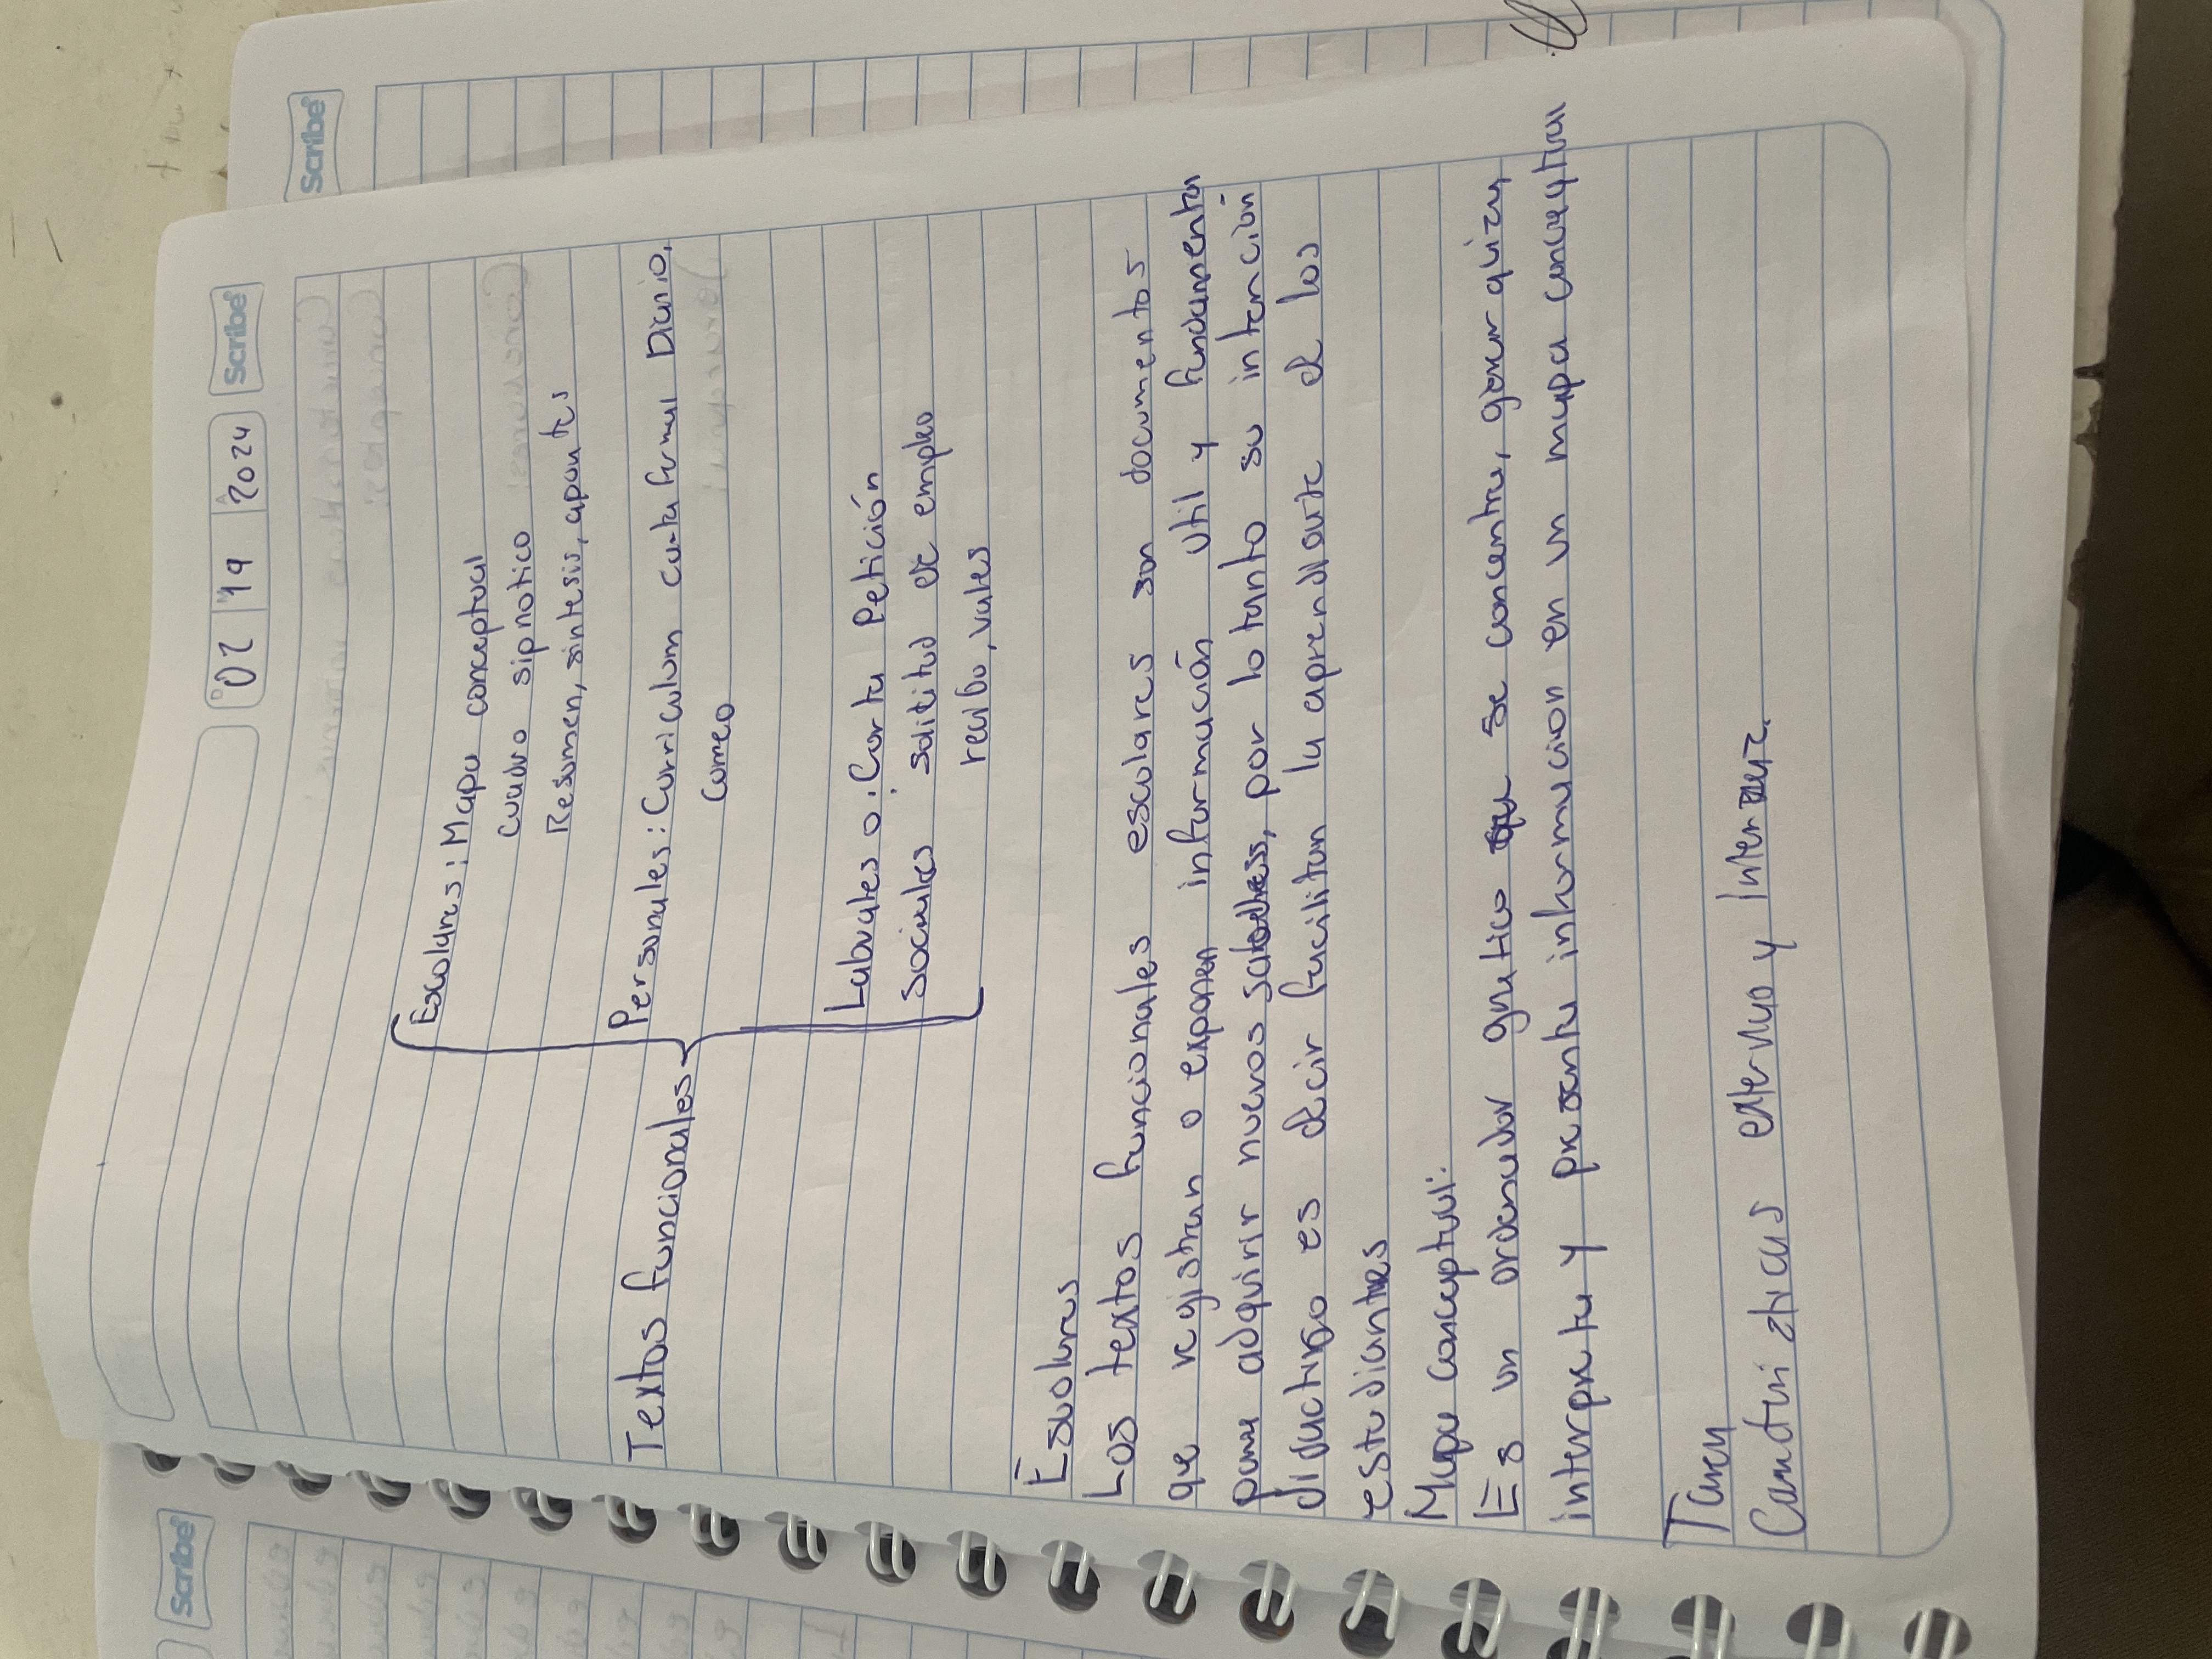 02 19 2024
Scribe
Escolares: Mapa conceptual
cuadro sipnotico
Resumen, sintesis, apuntes
Textos funcionales
Personales: Curriculum carta formal Diario,
correo
Laborales o: Carta Petición
sociales solicitud de empleo
recibo, vales
Escolares
Los textos funcionales escolares son documentos
que registran o exponen información util y fundamental
para adquirir nuevos saberes, por lo tanto su intención
didactico es decir facilitan la aprendizaje de los
estudiantes
Mapa conceptual:
Es un ordenador grafico que se concentra, gerarquizar,
interpreta y presenta informacion en un mapa conceptual
Tarea
Caracteristicas externo y interna.
Scribe
Scribe